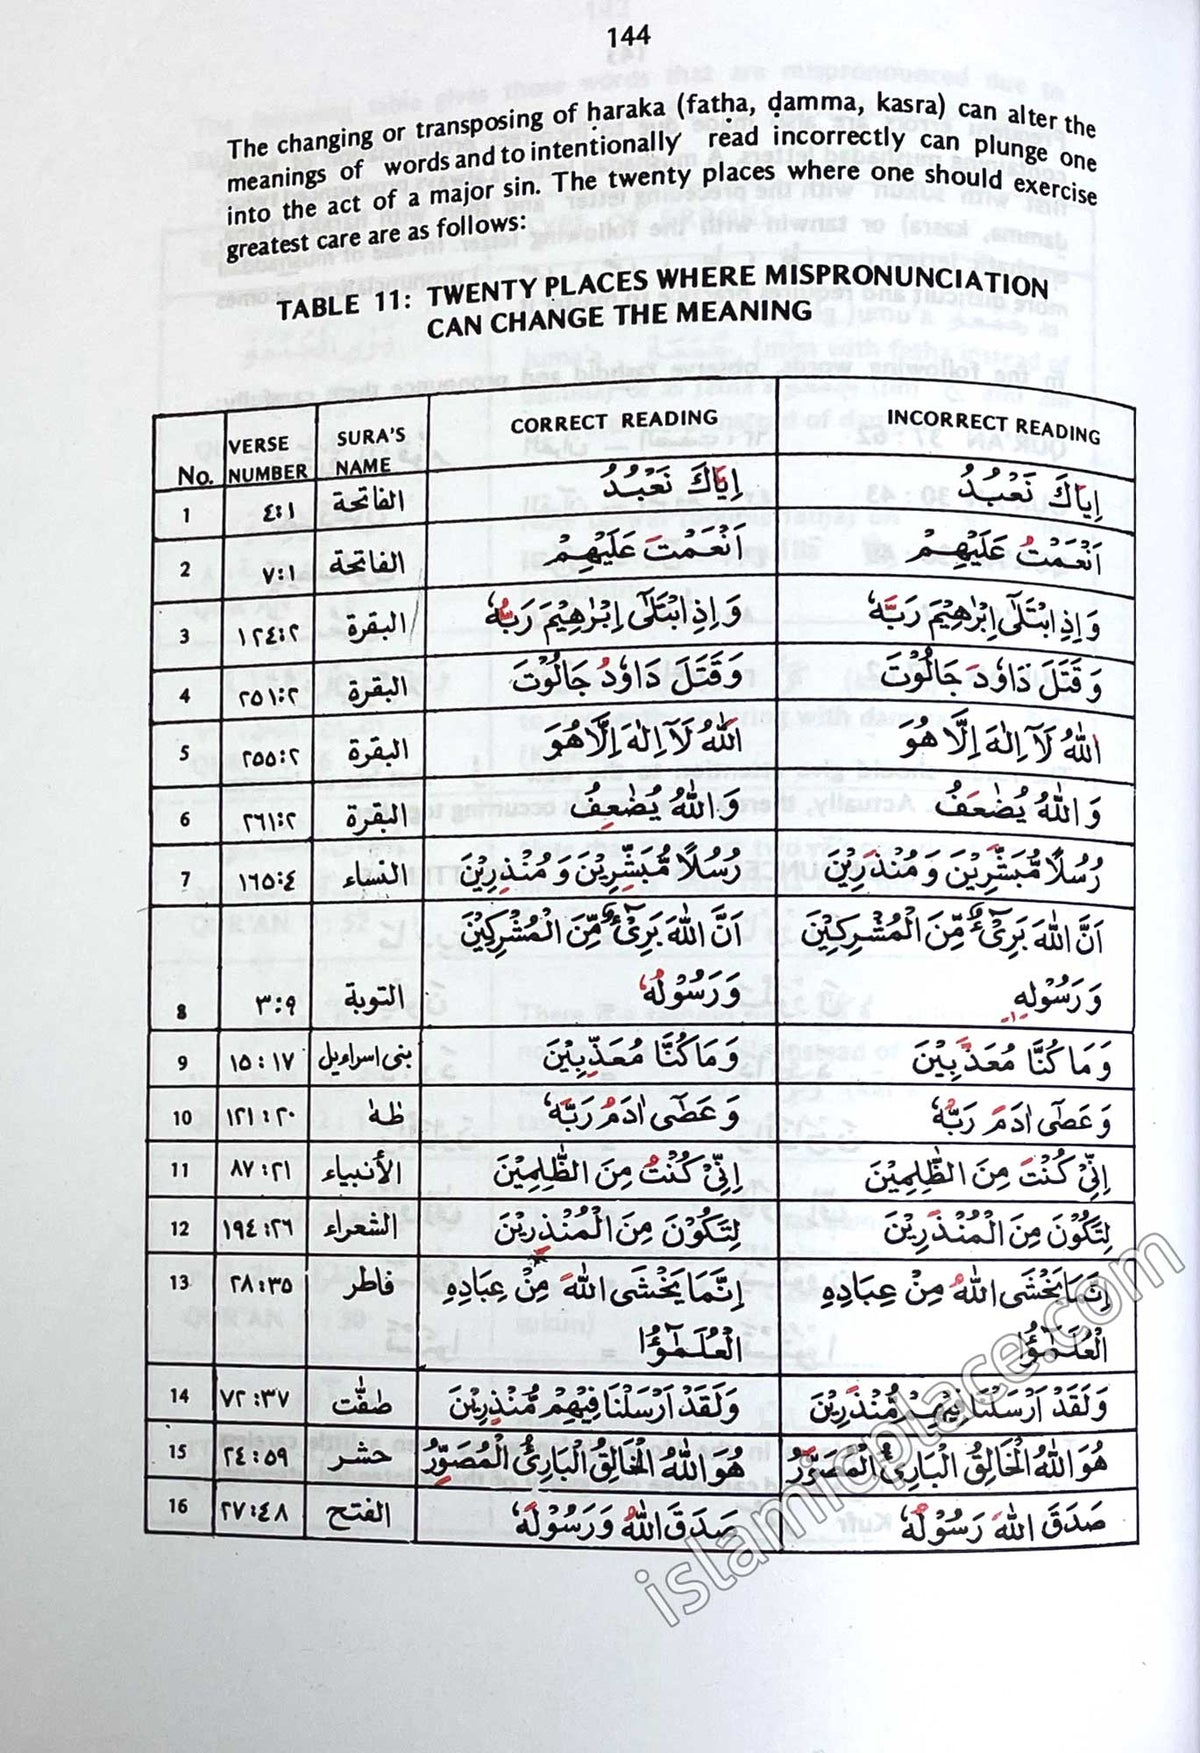 144
The changing or transposing of ḥaraka (fatḥa, ḍamma, kasra) can alter the
meanings of words and to intentionally read incorrectly can plunge one
into the act of a major sin. The twenty places where one should exercise
greatest care are as follows:
TABLE 11: TWENTY PLACES WHERE MISPRONUNCIATION
CAN CHANGE THE MEANING
No. VERSE NUMBER SURA'S NAME CORRECT READING INCORRECT READING
1 ٤:١ الفاتحة اِيَّاكَ نَعْبُدُ اِيَاكَ نَعْبُدُ
2 ٧:١ الفاتحة اَنْعَمْتَ عَلَيْهِمْ اَنْعَمْتُ عَلَيْهِمْ
3 ١٢٤:٢ البقرة وَاِذِ ابْتَلٰٓى اِبْرٰهِيْمَ رَبُّهٗ وَاِذِ ابْتَلٰٓى اِبْرٰهِيْمَ رَبَّهٗ
4 ٢٥١:٢ البقرة وَقَتَلَ دَاوٗدُ جَالُوْتَ وَقَتَلَ دَاوٗدَ جَالُوْتَ
5 ٢٥٥:٢ البقرة اَللّٰهُ لَآ اِلٰهَ اِلَّا هُوَ اَللّٰهُ لَآ اِلٰهَ اِلَّا هُوَ
6 ٢٦١:٢ البقرة وَاللّٰهُ يُضٰعِفُ وَاللّٰهُ يُضٰعَفُ
7 ١٦٥:٤ النساء رُسُلًا مُّبَشِّرِيْنَ وَمُنْذِرِيْنَ رُسُلًا مُّبَشَّرِيْنَ وَمُنْذَرِيْنَ
8 ٣:٩ التوبة اَنَّ اللّٰهَ بَرِىْٓءٌ مِّنَ الْمُشْرِكِيْنَ وَرَسُوْلُهٗ اَنَّ اللّٰهَ بَرِىْٓءٌ مِّنَ الْمُشْرِكِيْنَ وَرَسُوْلِهٖ
9 ١٥:١٧ بنى اسراويل وَمَا كُنَّا مُعَذِّبِيْنَ وَمَا كُنَّا مُعَذَّبِيْنَ
10 ١٢١:٢٠ طٰهٰ وَعَصٰٓى اٰدَمُ رَبَّهٗ وَعَصٰٓى اٰدَمَ رَبُّهٗ
11 ٨٧:٢١ الأنبياء اِنِّىْ كُنْتُ مِنَ الظّٰلِمِيْنَ اِنِّىْ كُنْتَ مِنَ الظّٰلِمِيْنَ
12 ١٩٤:٢٦ الشعراء لِتَكُوْنَ مِنَ الْمُنْذِرِيْنَ لِتَكُوْنَ مِنَ الْمُنْذَرِيْنَ
13 ٢٨:٣٥ فاطر اِنَّمَا يَخْشَى اللّٰهَ مِنْ عِبَادِهِ الْعُلَمٰٓؤُا اِنَّمَا يَخْشَى اللّٰهُ مِنْ عِبَادِهِ الْعُلَمٰٓؤُا
14 ٧٢:٣٧ صٰفّٰت وَلَقَدْ اَرْسَلْنَا فِيْهِمْ مُّنْذِرِيْنَ وَلَقَدْ اَرْسَلْنَا فِيْهِمْ مُّنْذَرِيْنَ
15 ٢٤:٥٩ حشر هُوَ اللّٰهُ الْخَالِقُ الْبَارِئُ الْمُصَوِّرُ هُوَ اللّٰهُ الْخَالِقُ الْبَارِئُ الْمُصَوَّرُ
16 ٢٧:٤٨ الفتح صَدَقَ اللّٰهُ وَرَسُوْلَهٗ صَدَقَ اللّٰهَ رَسُوْلُهٗ
islamicplace.com